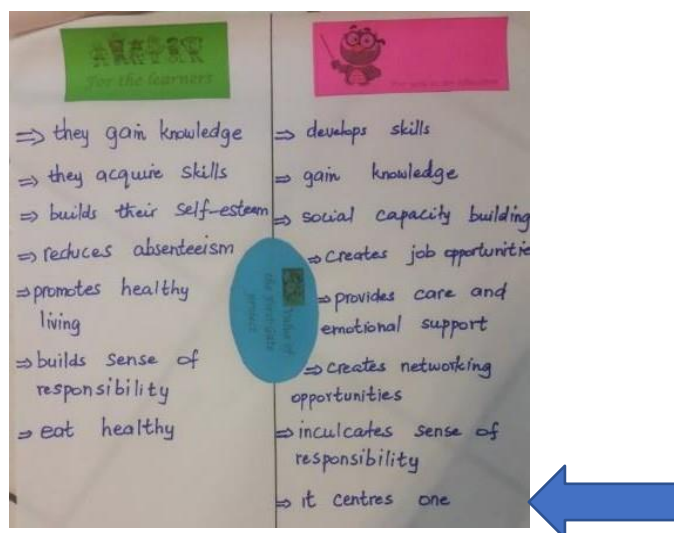 For the learners
⇒ they gain knowledge
⇒ they acquire skills
⇒ builds their self-esteem
⇒ reduces absenteeism
⇒ promotes healthy
living
⇒ builds sense of
responsibility
⇒ eat healthy
Value of
the
project
⇒ develops skills
⇒ gain knowledge
⇒ social capacity building
⇒ creates job opportunitie
⇒ provides care and
emotional support
⇒ creates networking
opportunities
⇒ inculcates sense of
responsibility
⇒ it centres one